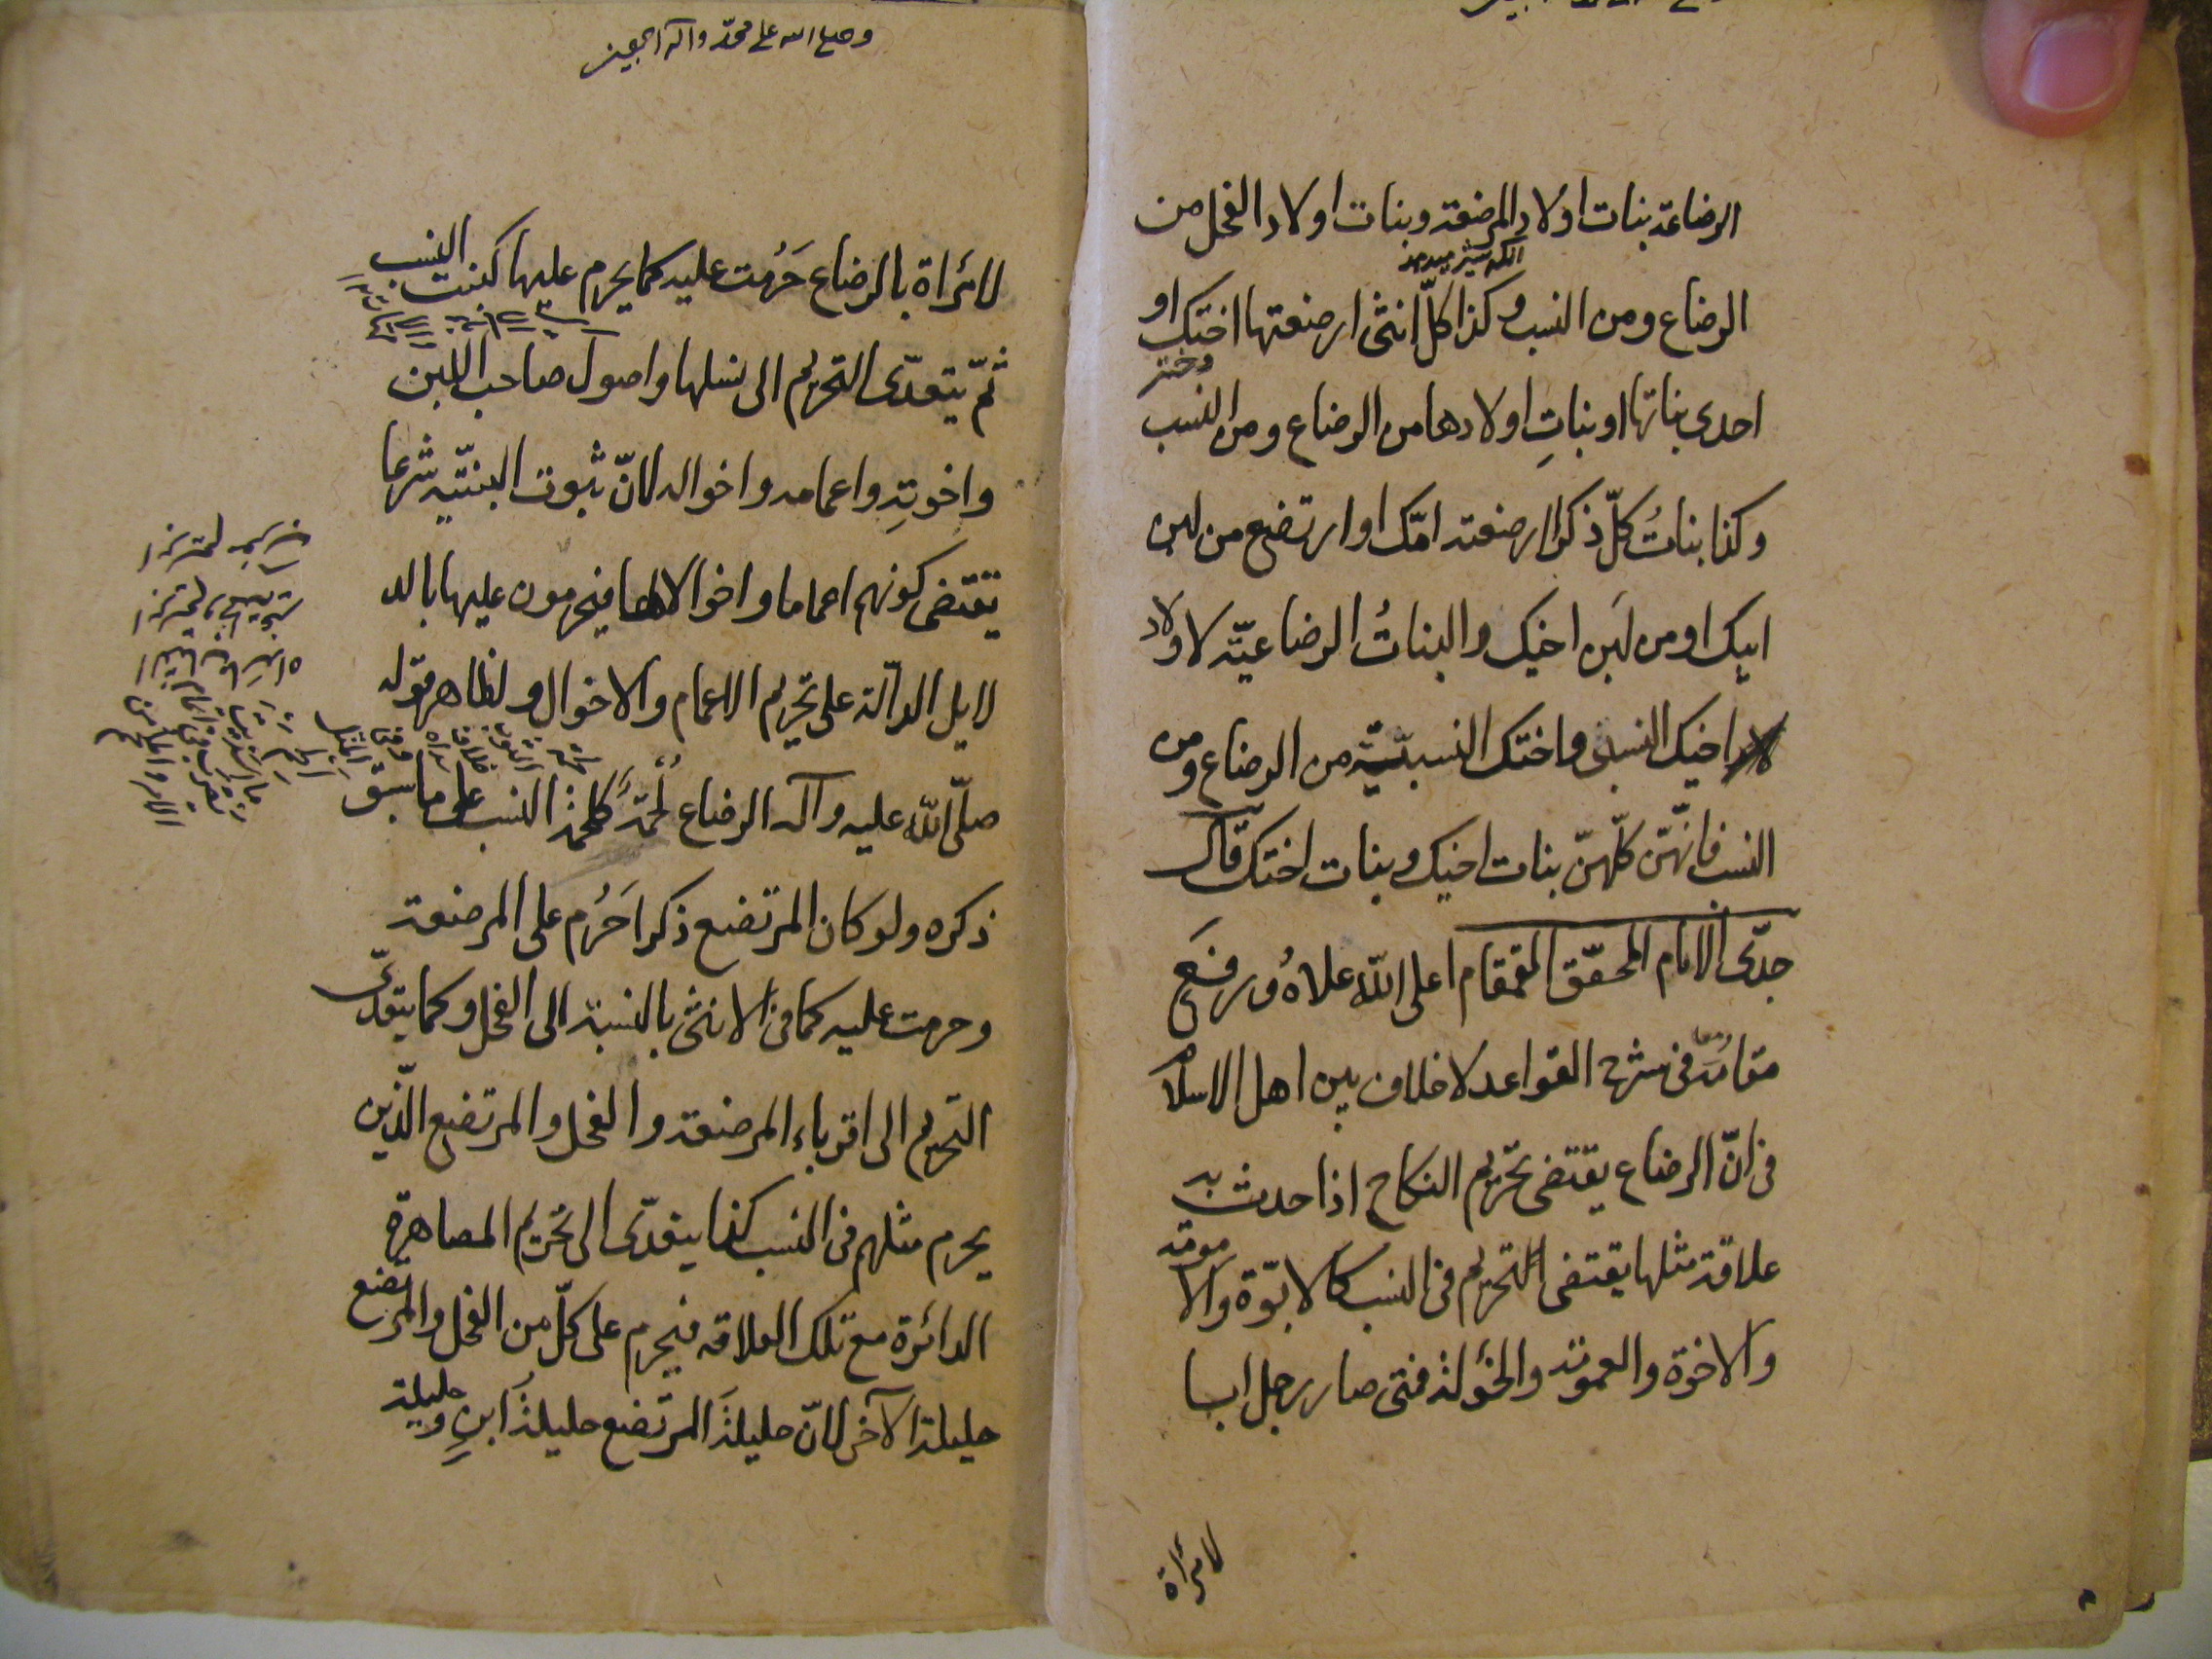 الرضاعة بنات اولاد المرضعة وبنات اولاد الفحل من
الرضاع ومن النسب وكذا كلّ انثى ارضعتها اختك او
احدى بناتها او بناتِ اولادها من الرضاع ومن النسب
دختر
وكذا بناتُ كلّ ذكر ارضعته امّك او ارتضع من لبن
ابيك او من لبَن اخيك والبناتُ الرضاعيّة لاولاد
اخيك النسبى واختك النسبيّة من الرضاع ومن
النسب فانّهنّ كلّهنّ بنات اخيك وبنات اختك قال
جدّى الامام المحقّق القمقام اعلى اللّه علاهُ ورفعَ
مقامَه فى شرح القواعد لا خلاف بين اهل الاسلام
فى انّ الرضاع يقتضى تحريم النكاح اذا حدث به
علاقة مثلها يقتضى التحريم فى النسب كالابوّة والامومة
والاخوة والعمومة والخؤلة فمتى صار رجل ابا
لامرأة
وصلى الله على محمّد وآله اجمعين
لامرأة بالرضاع حَرُمت عليه كما يحرم عليها كبنت النسب
ثمّ يتعدّى التحريم الى نسلها واصول صاحب اللبن
واخوتِه واعمامه واخواله لانّ ثبوت البنتيّة شرعا
يقتضى كونهم اعماما واخوالا لها فيحرمون عليها بالد
لايل الدالّة على تحريم الاعمام والاخوال ولظاهر قوله
صلّى اللّه عليه وآله الرضاع لُحمَةٌ كلُحمة النسب على ما سبق
ذكره ولو كان المرتضع ذكرا حَرُم على المرضعة
وحرمت عليه كما فى الانثى بالنسبة الى الفحل وكما يتعدّى
التحريم الى اقرباء المرضعة والفحل والمرتضع الّذين
يحرم مثلهم فى النسب كذا يتعدّى الى تحريم المصاهرة
الدائرة مع تلك العلاقه فيحرم على كلّ من الفحل والمرتضع
حليلة الآخر لانّ حليلةَ المرتضع حليلةُ ابنٍ وحليلة